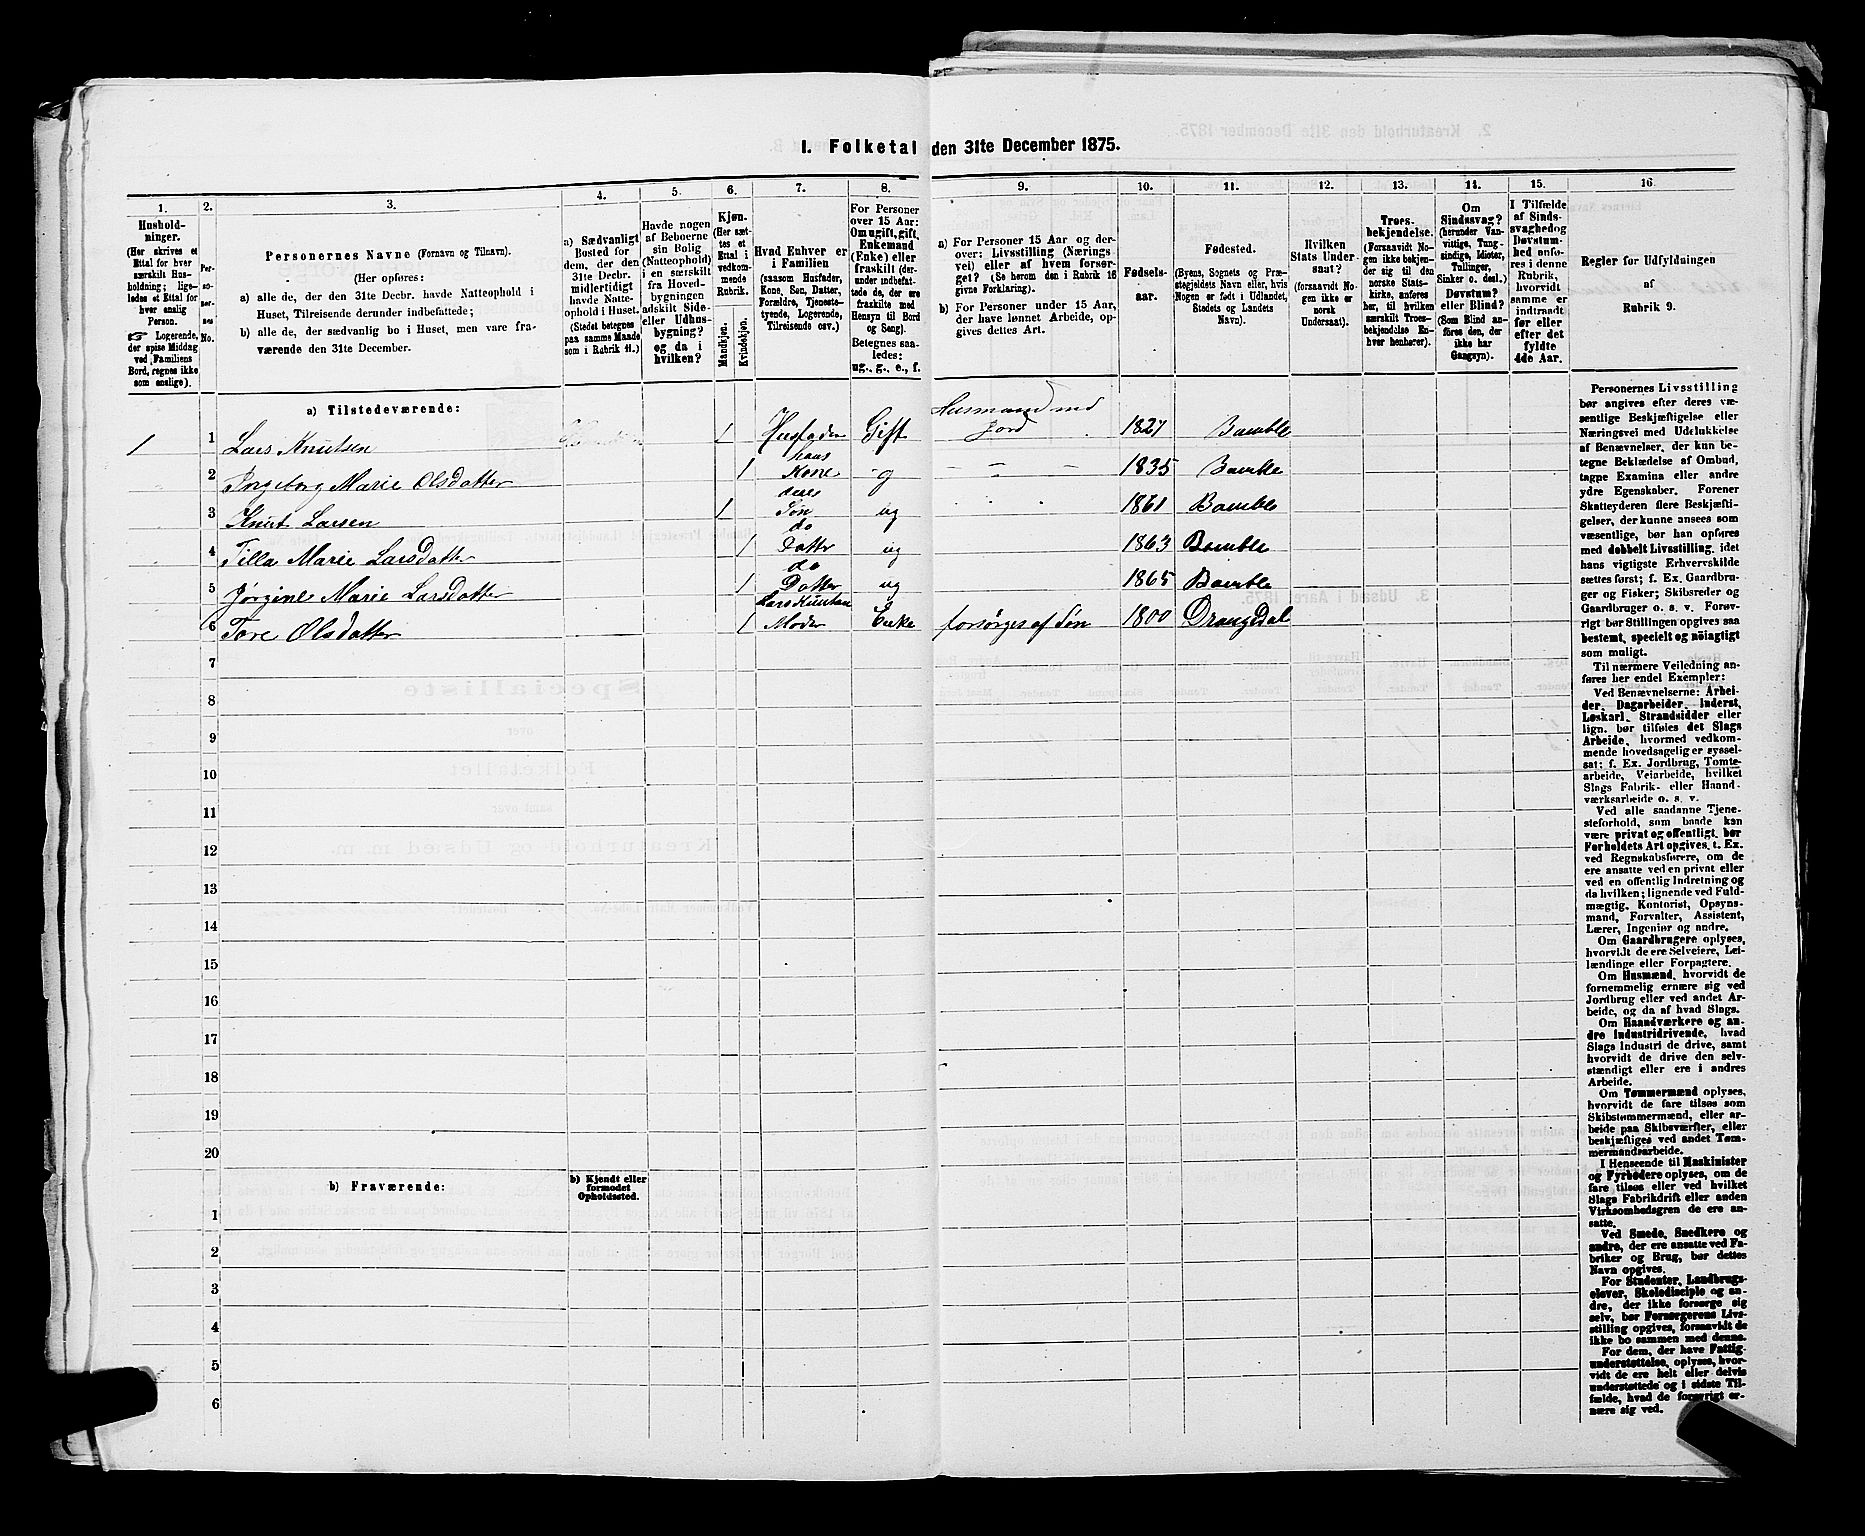 I. Folketal den 31te December 1875.
1. 2. 3. 4. 5. 6. 7. 8. 9. 10. 11. 12. 13. 14. 15. 16.
Husholdninger.
(Her skrives et
Ettal for hver
særskilt Husholdning;
ligeledes et Ettal for
hver enslig
Person.
☞ Logerende,
der spise Middag
ved Familiens
Bord, regnes ikke
som enslige).
Personernes No.
Personernes Navne (Fornavn og Tilnavn).
(Her opføres:
a) alle de, der den 31te Decbr. havde Natteophold i
Huset, Tilreisende derunder indbefattede;
b) alle de, der sædvanlig bo i Huset, men vare fra-
værende den 31te December.
a) Sædvanligt
Bosted for
dem, der den
31te Decbr.
midlertidigt
havde Natte-
ophold i Huset.
(Stedet betegnes
paa samme Maade
som i Rubrik 11.)
Havde nogen
af Beboerne
sin Bolig
(Natteophold)
i en særskilt
fra Hoved-
bygningen
adskilt Side-
eller Udhus-
bygning?
og da i
hvilken?
Kjøn.
(Her sæt-
tes et
Ettal i
vedkom-
mende
Rubrik.
Mandkjøn.
Kvindekjøn.
Hvad Enhver er
i Familien
(saasom Husfader,
Kone, Søn, Datter,
Forældre, Tjeneste-
tyende, Logerende,
Tilreisende osv.)
For Personer
over 15 Aar:
Om ugift, gift,
Enkemand
(Enke) eller
fraskilt (der-
under indbefat-
tede de, der ere
fraskilte med
Hensyn til Bord
og Seng).
Betegnes saa-
ledes:
ug., g., e., f.
a) For Personer 15 Aar og der-
over: Livsstilling (Nærings-
vei) eller af hvem forsør-
get? (Se herom den i Rubrik 16
givne Forklaring).
b) For Personer under 15 Aar,
der have lønnet Arbeide, op-
gives dettes Art.
Fødsels-
aar.
Fødested.
(Byens, Sognets og Præ-
stegjeldets Navn eller, hvis
Nogen er født i Udlandet,
Stedets og Landets
Navn).
Hvilken
Stats Under-
saat?
(forsaavidt No-
gen ikke er
norsk
Undersaat).
Troes-
bekjendelse.
(Forsaavidt No-
gen ikke bekjen-
der sig til den
norske Stats-
kirke, anføres
her, til hvilken
særskilt Troes-
bekjendelse En-
hver henhører).
Om
Sindssvag?
(herunder Van-
vittige, Tung-
sindige, Idioter,
Tullinger,
Sinker o. desl.)
Døvstum?
eller Blind?
(Som Blind an-
føres den, der
ikke har
Gangsyn).
I Tilfælde
af Sinds-
svaghed og
Døvstum-
hed anfø-
res i denne
Rubrik,
hvorvidt
samme er
indtraadt
før eller
efter det
fyldte
4de Aar.
Regler for Udfyldningen
af
Rubrik 9.
a) Tilstedeværende:
Husmand med
1 1 Lars Knutsen 1 Husfader Gift Jord 1827 Bamble
hans
2 Ingeborg Marie Olsdatter 1 Kone g 1835 Bamble
deres
3 Knut Larsen 1 Søn ug 1861 Bamble
do
4 Tilla Marie Larsdatter 1 Datter ug 1863 Bamble
do
5 Jørgine Marie Larsdatter 1 Datter ug 1865 Bamble
Lars Knutsen
6 Tore Olsdatter 1 Moder Enke forsørges af Søn 1800 Drangedal
7
8
9
10
11
12
13
14
15
16
17
18
19
20
b) Fraværende: b) Kjendt eller
formodet
Opholdssted.
1
2
3
4
5
6
Personernes Livsstilling
bør angives efter deres væ-
sentlige Beskjæftigelse eller
Næringsvei med Udelukkelse
af Benævnelser, der kun be-
tegne Beklædelse af Ombud,
tagne Examina eller andre
ydre Egenskaber. Forener
Skatteyderen flere Beskjæfti-
gelser, der kunne ansees som
væsentlige, bør han opføres
med dobbelt Livsstilling, idet
hans vigtigste Erhvervskilde
sættes først; f. Ex. Gaardbru-
ger og Fisker; Skibsreder og
Gaardbruger o. s. v. Forøv-
rigt bør Stillingen opgives saa
bestemt, specielt og nøiagtigt
som muligt.
Til nærmere Veiledning an-
føres her endel Exempler:
Ved Benævnelserne: Arbei-
der, Dagarbeider, Inderst,
Løskarl, Strandsidder eller
lign. bør tilføies det Slags
Arbeide, hvormed vedkom-
mende hovedsagelig er syssel-
sat; f. Ex. Jordbrug, Tomte-
arbeide, Veiarbeide, hvilket
Slags Fabrik- eller Haand-
værksarbeide o. s. v.
Ved alle saadanne Tjene-
steforhold, som baade kan
være privat og offentligt, bør
Forholdets Art opgives, t. Ex.
ved Regnskabsførere, om de
ere ansatte ved en privat eller
ved en offentlig Indretning og
da hvilken; lignende ved Fuld-
mægtig, Kontorist, Opsyns-
mand, Forvalter, Assistent,
Lærer, Ingeniør og andre.
Om Gaardbrugere oplyses,
hvorvidt de ere Selveiere, Lei-
lændinge eller Forpagtere.
Om Husmænd, hvorvidt de
fornemmelig ernære sig ved
Jordbrug eller ved andet Ar-
beide, og da af hvad Slags.
Om Haandværkere og an-
dre Industridrivende, hvad
Slags Industri de drive, samt
hvorvidt de drive den selv-
stændigt eller ere i andres
Arbeide.
Om Tømmermænd oplyses,
hvorvidt de fare tilsøs som
Skibstømmermænd, eller ar-
beide paa Skibsværfter, eller
beskjæftiges ved andet Tøm-
mermandsarbeide.
I Henseende til Maskinister
og Fyrbødere oplyses, om de
fare tilsøs eller ved hvilket
Slags Fabrikdrift eller anden
Virksomhedsgren de ere an-
satte.
Ved Smede, Snedkere og
andre, der ere ansatte ved Fa-
briker og Brug, bør dettes
Navn opgives.
For Studenter, Landbrugs-
elever, Skoledisciple og an-
dre, der ikke forsørge sig
selv, bør Forsørgerens Livs-
stilling opgives, forsaavidt de
ikke bo sammen med denne.
For dem, der have Fattig-
understøttelse, oplyses, hvor-
vidt de ere helt eller delvis
understøttede og i sidste Til-
fælde, hvad de forøvrigt er-
nære sig ved.